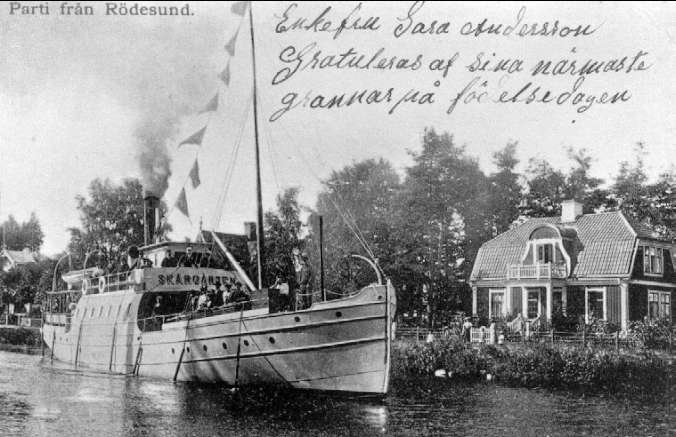 Parti från Rödesund.
Enkefru Sara Andersson
Gratuleras af sina närmaste
grannar på födelsedagen
SKÄRGÅRDEN